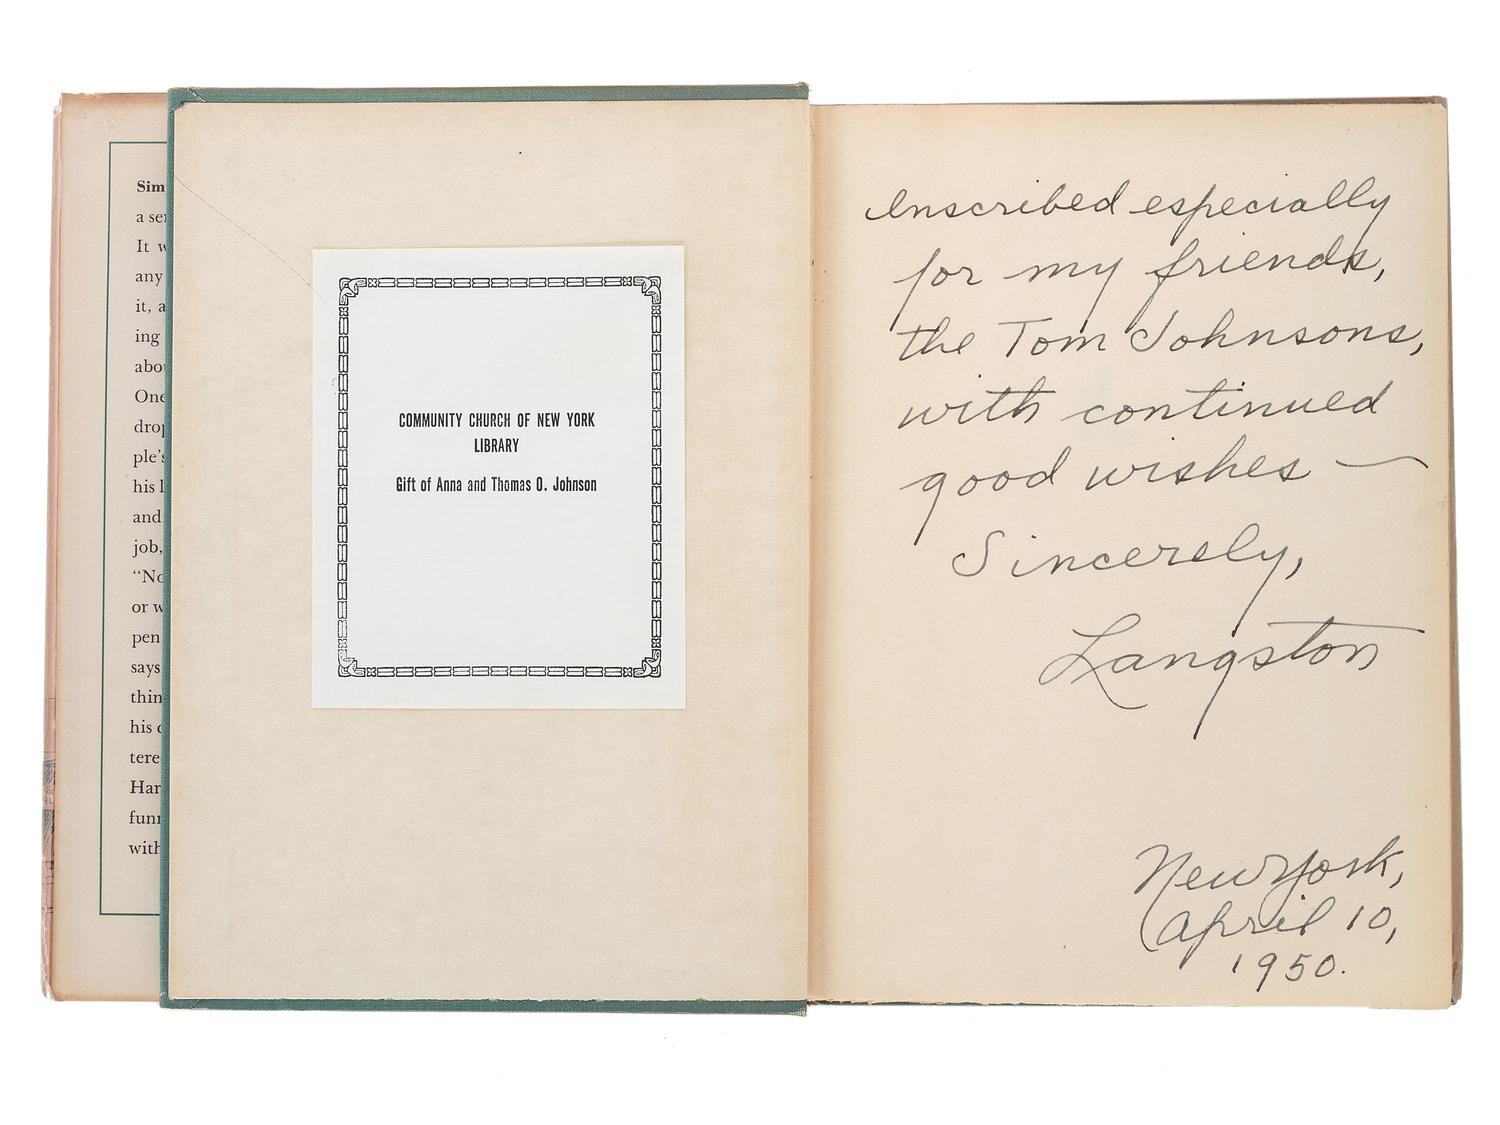 Sim
a se
It w
any
it, a
ing
abo
One
drop
ple's
his l
and
job,
"No
or w
pen
says
thin
his c
tere
Har
funn
with
COMMUNITY CHURCH OF NEW YORK
LIBRARY
Gift of Anna and Thomas O. Johnson
Inscribed especially
for my friends,
the Tom Johnsons,
with continued
good wishes —
Sincerely,
Langston
New York,
April 10,
1950.